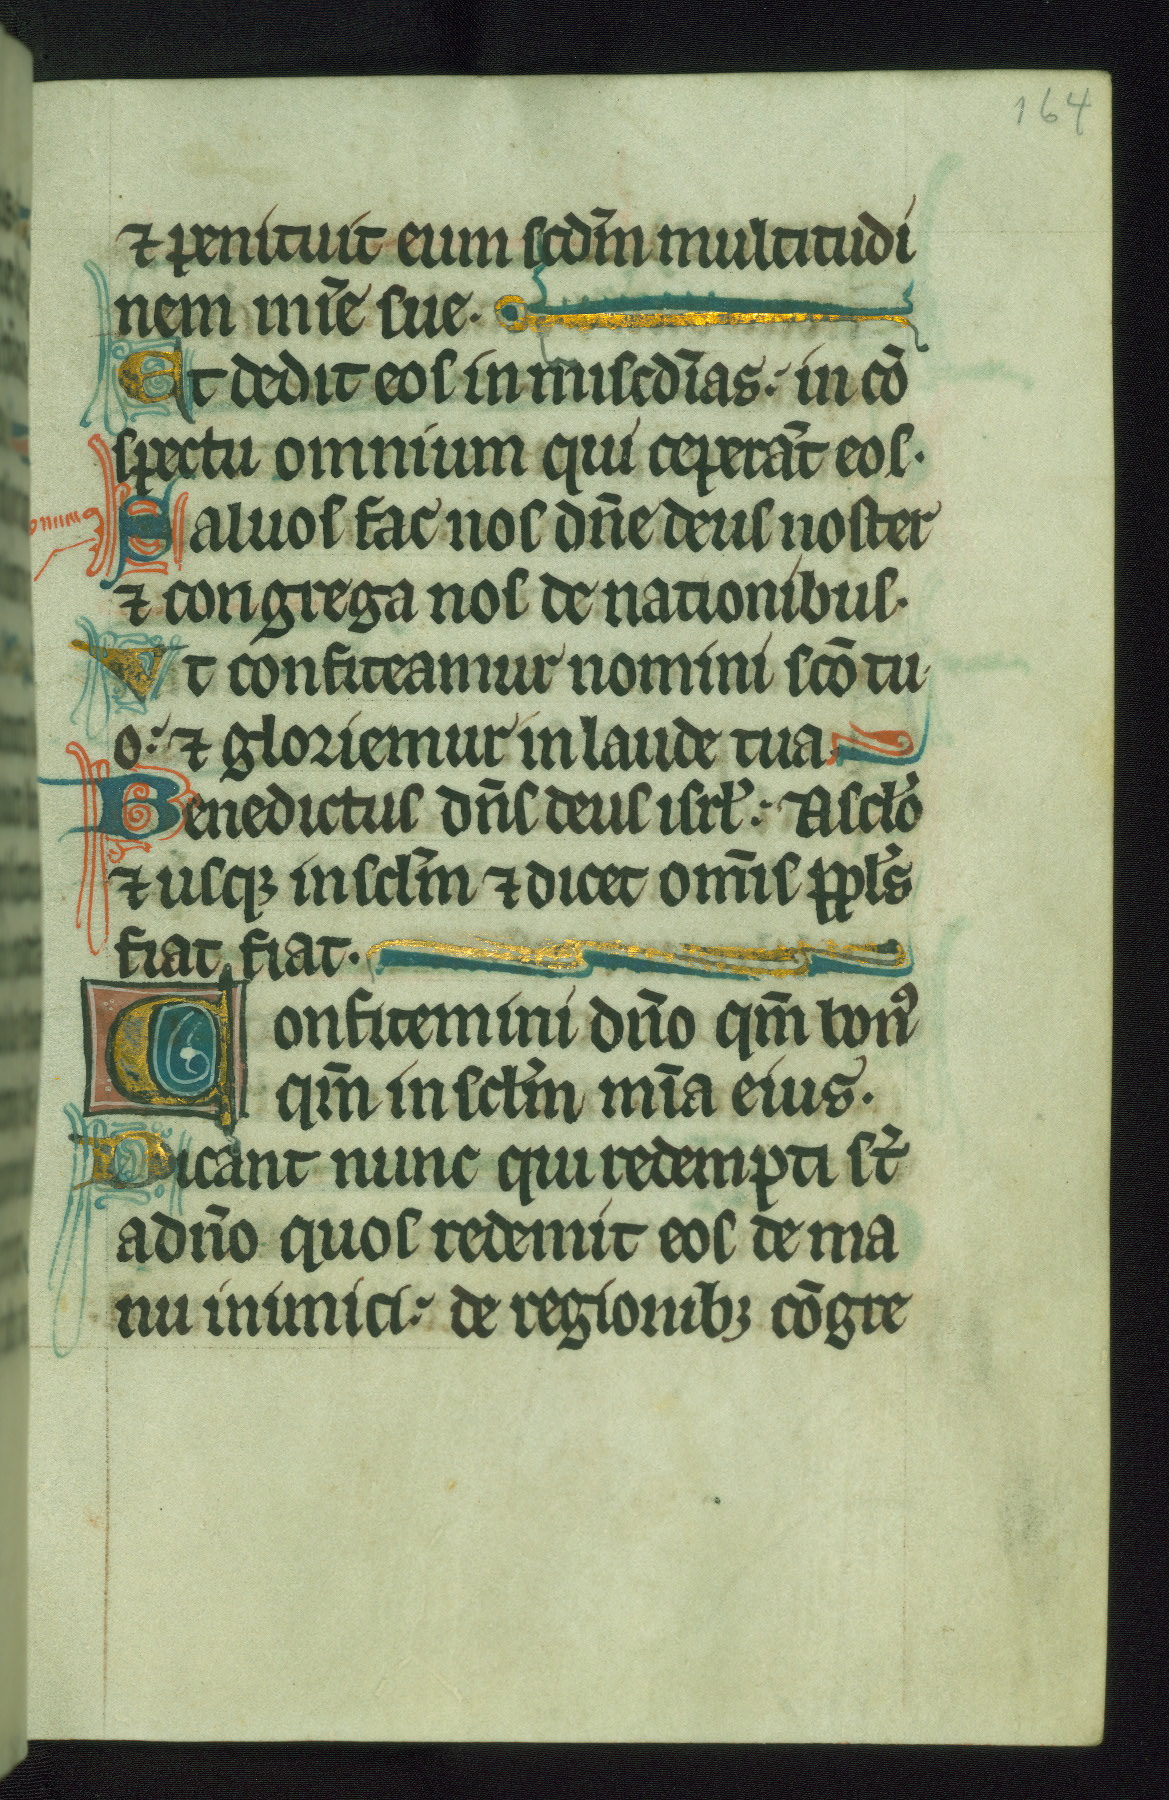 164
⁊ penituit eum scd̄m multitudi
nem mīe sue.
Et dedit eos in misc̄dias: in cō
spectu omnium qui ceperāt eos.
Saluos fac nos dn̄e deus noster
⁊ congrega nos de nationibus.
Vt confiteamur nomini scō tu
o: ⁊ gloriemur in laude tua
Benedictus dn̄s deus isrł: A scło
⁊ usqꝫ in scłm ⁊ dicet om̄is ppłs
fiat fiat.
Confitemini dn̄o qm̄ bonꝰ
qm̄ in scłm mīa eius.
Dicant nunc qui redempti st̄
a dn̄o quos redemit eos de ma
nu inimici: de regionibꝫ cōgre